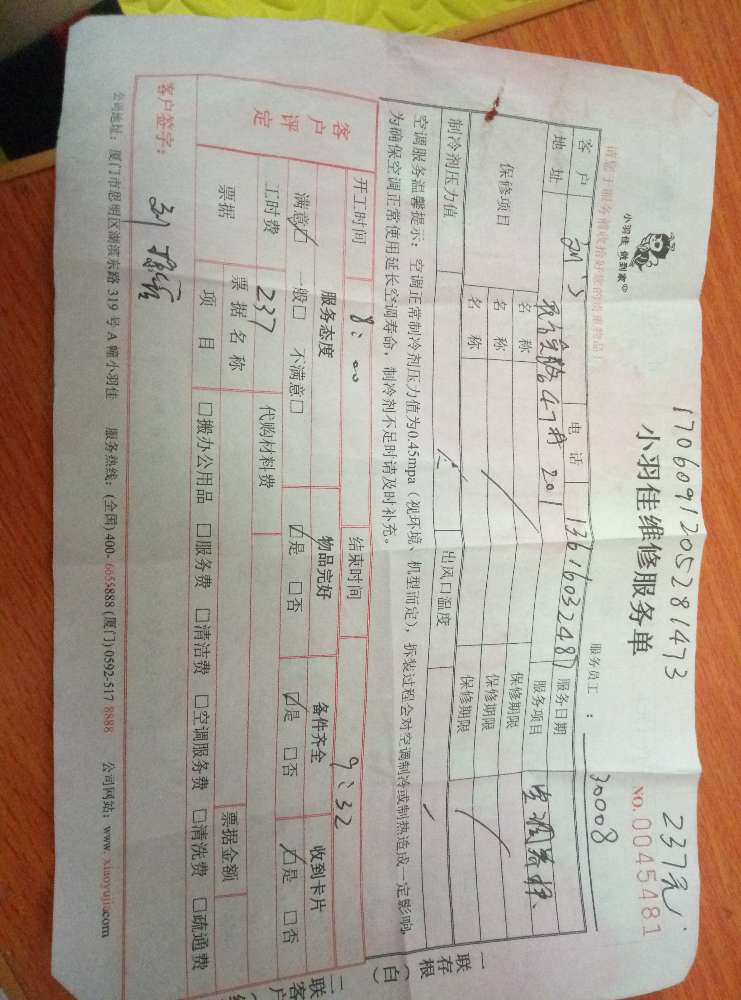 1706091205281473
237元
小羽佳 做到家
小羽佳维修服务单
NO.0045481
请您于服务前收拾好您的贵重物品！
服务员工：30008
客户 电话 13616032487 服务日期
地址 47 201 服务项目 空调
保修项目 名称 保修期限
名称 保修期限
名称 保修期限
制冷剂压力值 出风口温度
空调服务温馨提示：空调正常制冷剂压力值为0.45mpa（视环境、机型而定），拆装过程会对空调制冷或制热造成一定影响，
为确保空调正常使用延长空调寿命，制冷剂不足时请及时补充。
一存根（白）
联
开工时间 8:00 结束时间 9:32
客户评定 服务态度 物品完好 备件齐全 收到卡片
满意☑ 一般□ 不满意□ ☑是 □否 ☑是 □否 ☑是 □否
工时费 237 代购材料费
票据 票据名称 票据金额
项目 □搬办公用品 □服务费 □清洁费 □空调服务费 □清洗费 □疏通费
二联客户
客户签字：刘
公司地址：厦门市思明区湖滨东路 319 号 A 幢小羽佳 服务热线：(全国) 400-6655888 (厦门) 0592-517 8888 公司网站：www. xiaoyujia.com